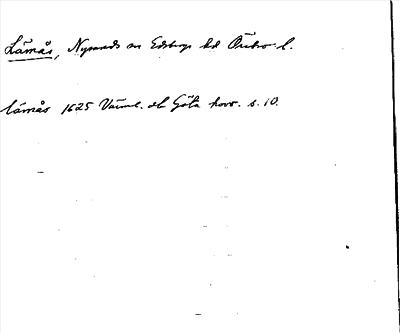 Låmås, Nysunds sn Edsbergs hd Örebro l.
låmås 1625 Värml. o Göta hovr. s. 10.